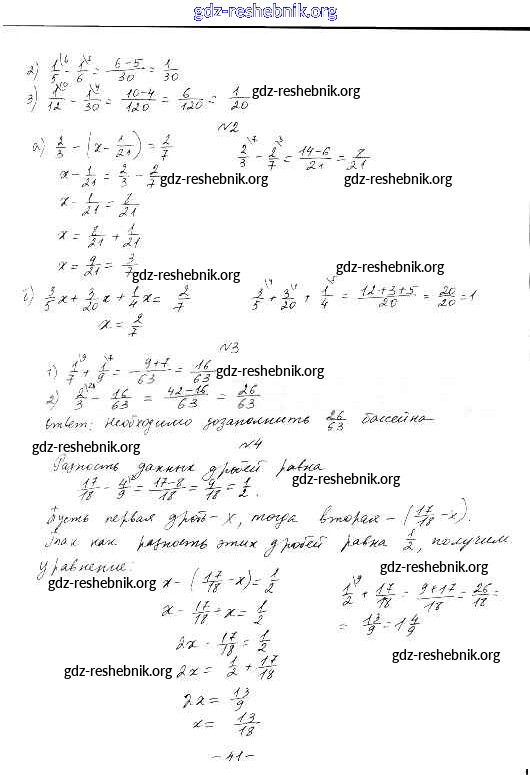 gdz-reshebnik.org
2) 1/5\6 - 1/6\5 = (6-5)/30 = 1/30
3) 1/12\10 - 1/30\4 = (10-4)/120 = 6/120 = 1/20 gdz-reshebnik.org
№2
а) 2/3 - (x - 1/21) = 2/7   2/3\7 - 2/7\3 = (14-6)/21 = 8/21
x - 1/21 = 2/3 - 2/7 gdz-reshebnik.org gdz-reshebnik.org
x - 1/21 = 8/21
x = 8/21 + 1/21
x = 9/21 = 3/7 gdz-reshebnik.org gdz-reshebnik.org
б) 3/5 x + 3/20 x + 1/4 x = 2/7   3/5\4 + 3/20\1 + 1/4\5 = (12+3+5)/20 = 20/20 = 1
x = 2/7
№3
1) 1/7\9 + 1/9\7 = (9+7)/63 = 16/63 gdz-reshebnik.org
2) 2/3\21 - 16/63 = (42-16)/63 = 26/63
Ответ: необходимо дозаполнить 26/63 бассейна
gdz-reshebnik.org №4
Разность данных дробей равна
17/18 - 4/9\2 = (17-8)/18 = 9/18 = 1/2. gdz-reshebnik.org
Пусть первая дробь - x, тогда вторая - (17/18 - x).
Так как разность этих дробей равна 1/2, получим
уравнение: gdz-reshebnik.org
gdz-reshebnik.org x - (17/18 - x) = 1/2   1/2\9 + 17/18 = (9+17)/18 = 26/18 =
x - 17/18 + x = 1/2   = 13/9 = 1 4/9
2x - 17/18 = 1/2
gdz-reshebnik.org
gdz-reshebnik.org 2x = 1/2 + 17/18
2x = 13/9
x = 13/18
- 41 -